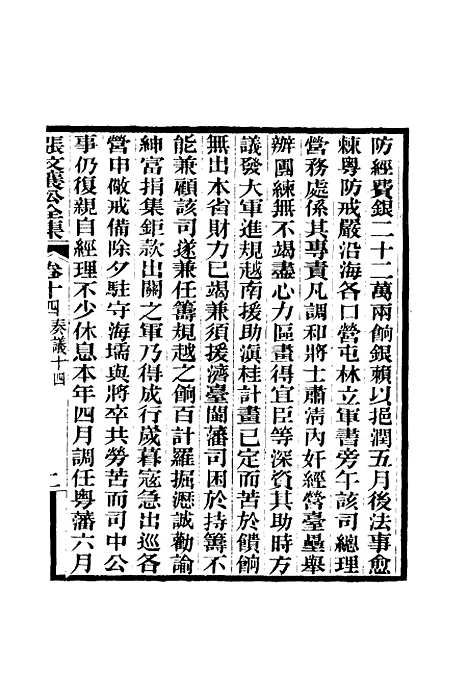 防經費銀二十二萬兩餉銀賴以挹潤五月後法事愈
棘粵防戒嚴沿海各口營屯林立軍書旁午該司總理
營務處係其專責凡調和將士肅淸內奸經營臺壘舉
辦團練無不竭盡心力區畫得宜臣等深資其助時方
議發大軍進規越南援助滇桂計畫已定而苦於饋餉
無出本省財力已竭兼須援濟臺閩藩司困於持籌不
能兼顧該司遂兼任籌規越之餉百計羅掘瀝誠勸諭
紳富捐集鉅款出關之軍乃得成行歲暮寇急出巡各
營申儆戒備除夕駐守海壖與將卒共勞苦而司中公
事仍復親自經理不少休息本年四月調任粵藩六月
張文襄公全集 卷十四 奏議十四